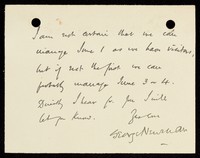 I am not certain that we can
manage June 1 as we have visitors,
but if not the first we can
probably manage June 3 or 4.
Directly I hear for I will
let you know.
Yrs ever
George Newman